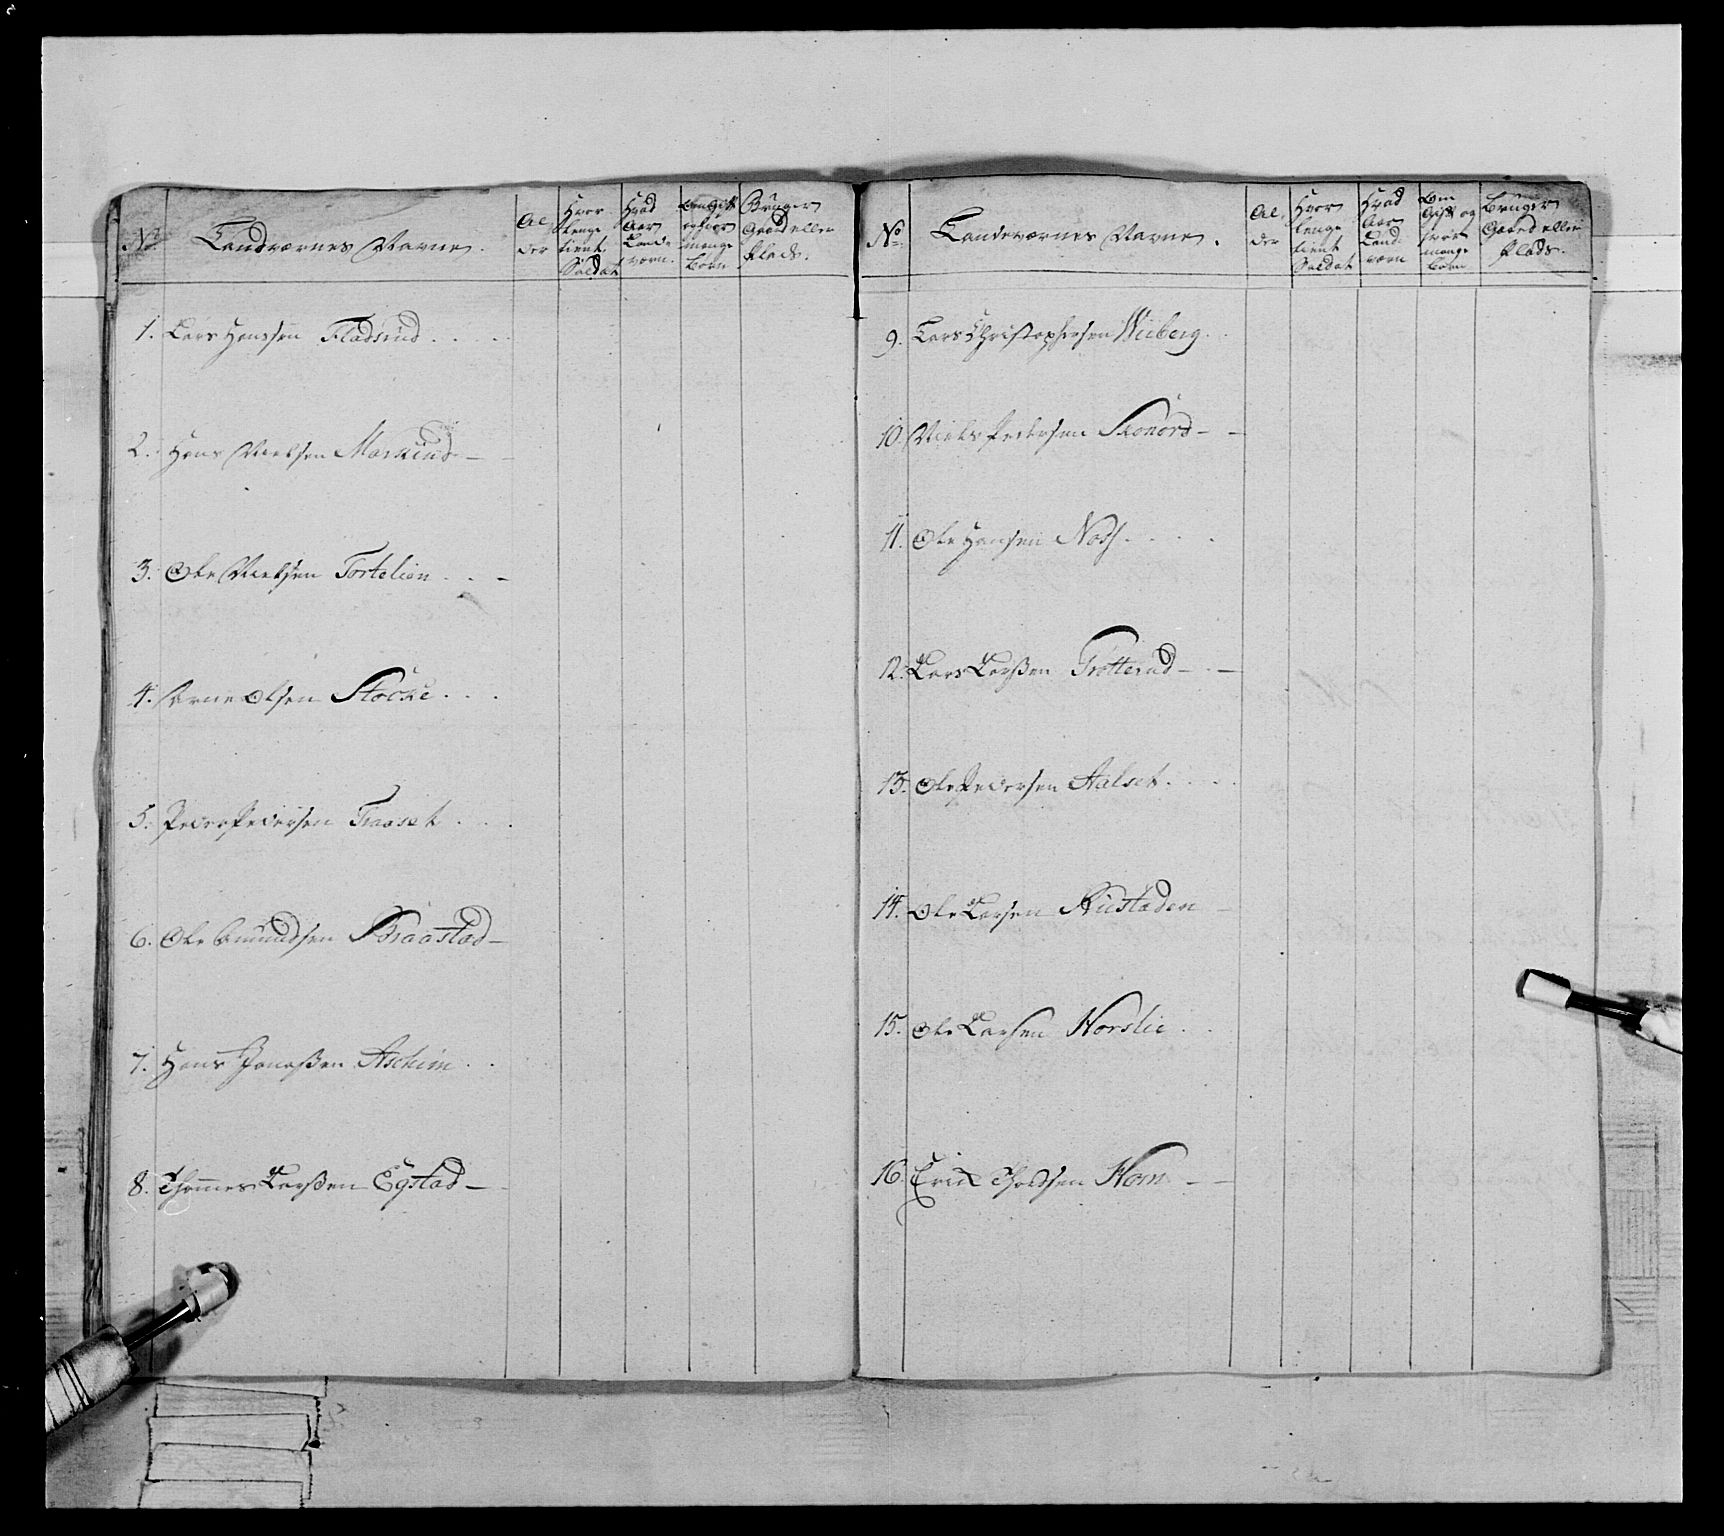 No Landværnes Navne. Al der Hvor lenge tient Soldat Hvad Aar Landværn. Om Gift og hvor mange Børn Bruger Gaard eller Plads.
1. Lars Hanssen Fladsrud
2. Hans Nielsen Markrud
3. Ole Nielsen Tortelien
4. Arne Olsen Stocke
5. Peder Pedersen Traaset
6. Ole Amundsen Braastad
7. Hans Jonaßen Aschim
8. Thommes Larßen Egstad
No Landeværnes Navne. Al der Hvor lenge tient Soldat Hvad Aar Land værn Om Gift og hvor mange Børn Bruger Gaard eller Plads.
9. Lars Christophersen Wiiberg
10. Niels Pedersen Skonord
11. Ole Hansen Noss
12. Lars Larßen Trøtterud
13. Ole Pedersen Aalset
14. Ole Larsen Rustaden
15. Ole Larsen Horslie
16. Erich Tholfsen Horn